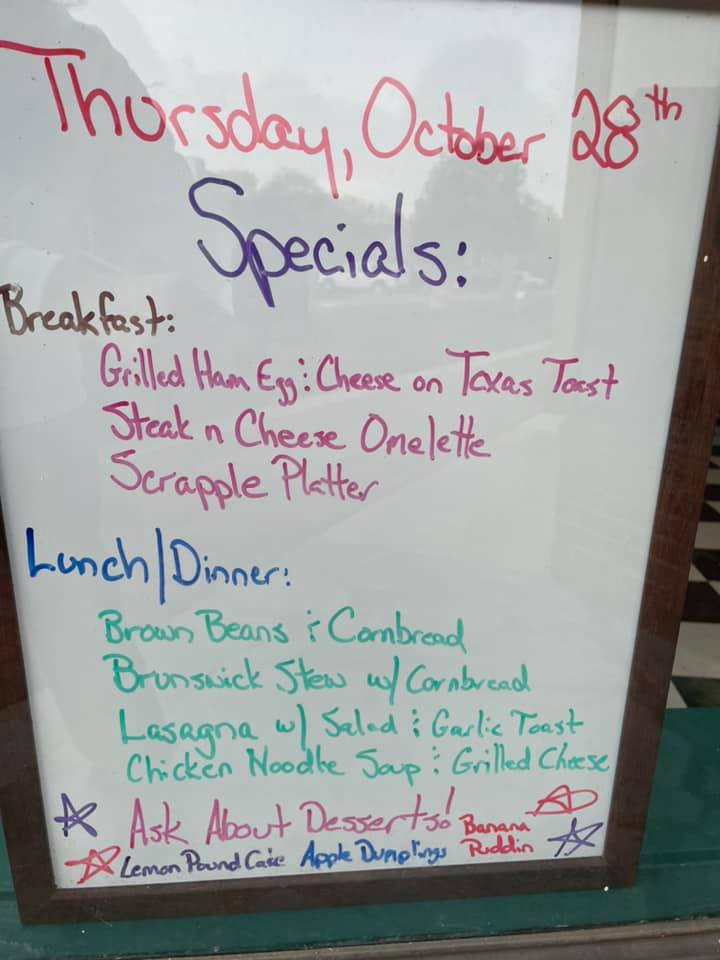 Thursday, October 28th
Specials:
Breakfast:
Grilled Ham Egg & Cheese on Texas Toast
Steak n Cheese Omelette
Scrapple Platter
Lunch/Dinner:
Brown Beans & Cornbread
Brunswick Stew w/ Cornbread
Lasagna w/ Salad & Garlic Toast
Chicken Noodle Soup & Grilled Cheese
Ask About Desserts!
Lemon Pound Cake Apple Dumplings Banana Puddin